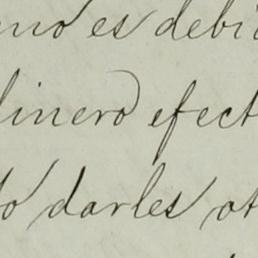 no es debi
dinero efect
to darles ot